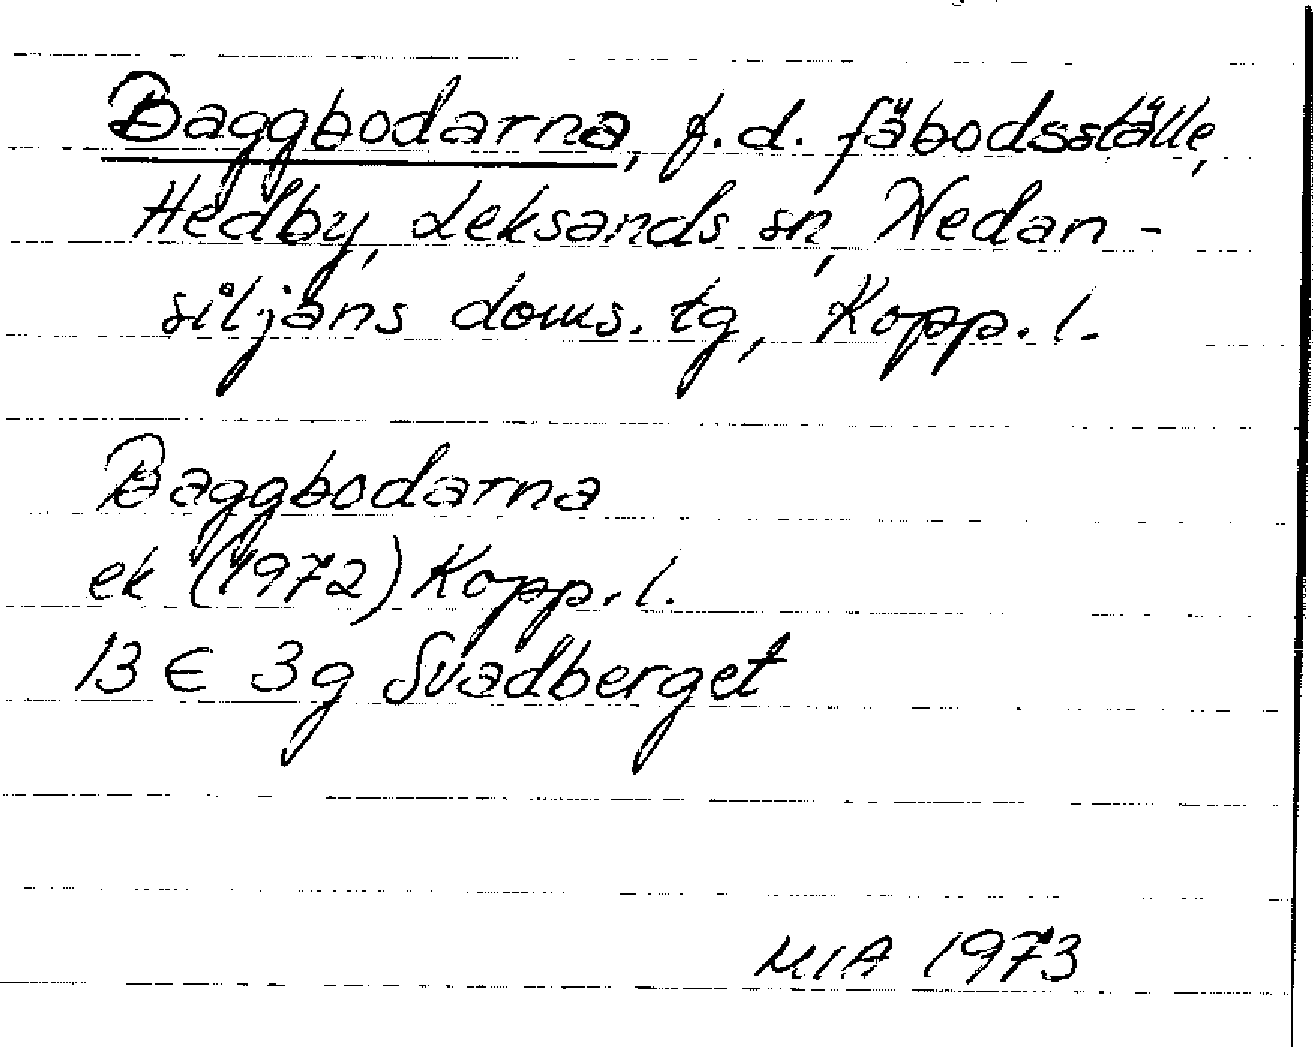 Baggbodarna, f.d. fäbodsställe,
Hedby, Leksands sn, Nedan-
siljans doms. tg, Kopp. l.
Baggbodarna
ek (1972) Kopp. l.
13 E 3g Svadberget
MIA 1973